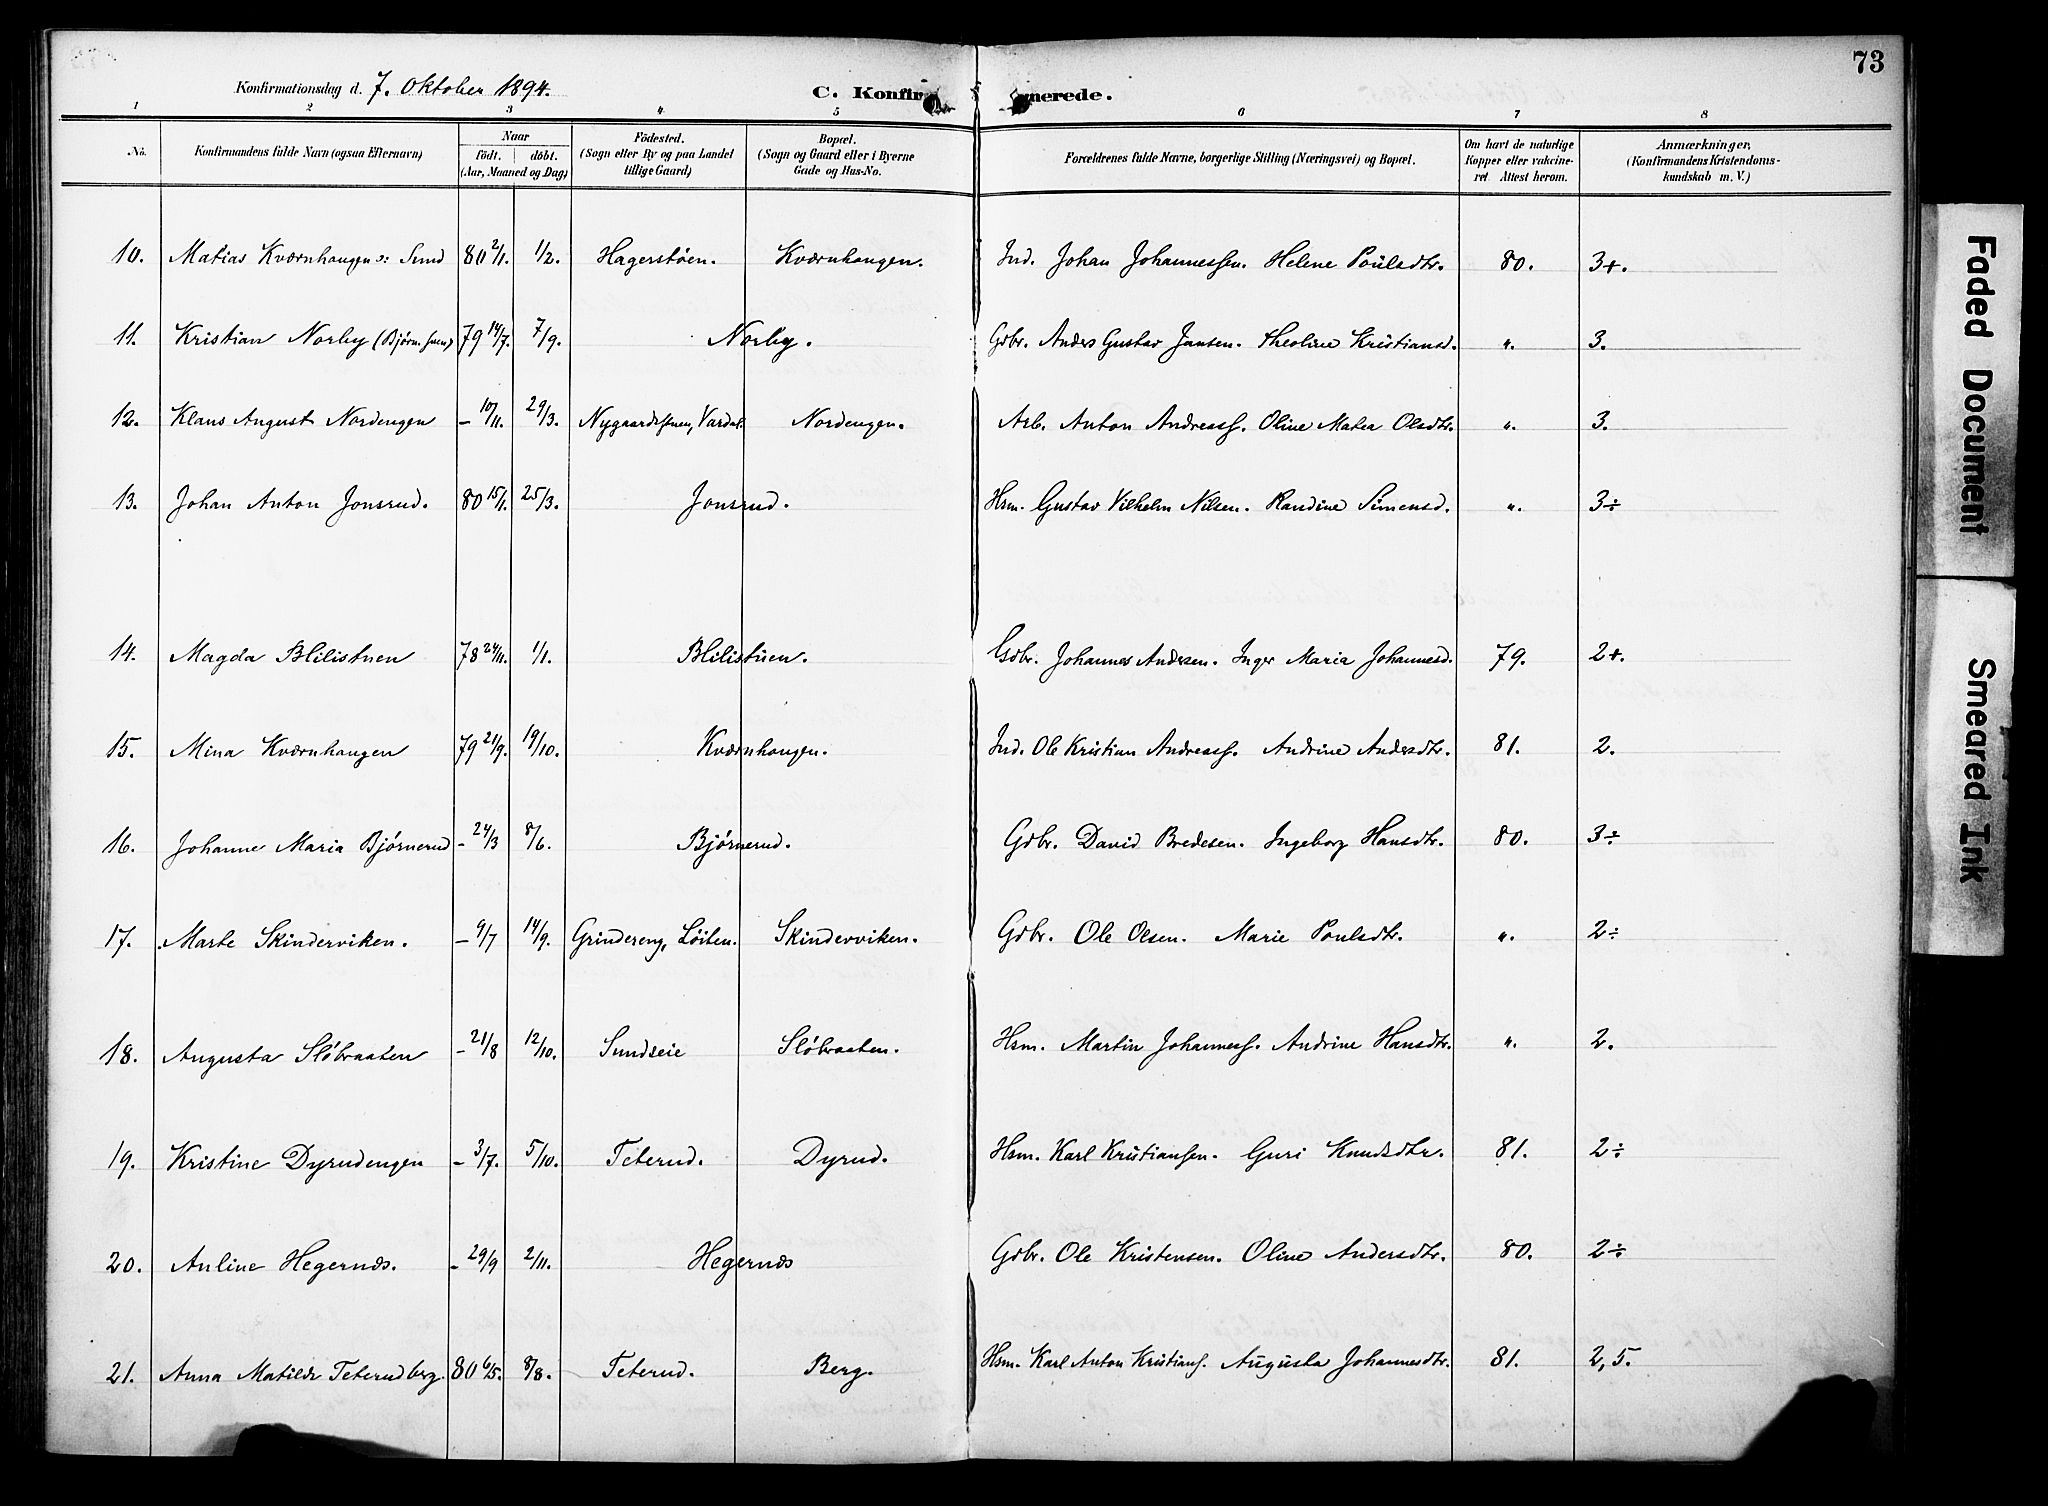 73
Konfirmationsdag d. 7. Oktober 1894.
C. Konfirmerede.
1 2 3 4 5 6 7 8
No. Konfirmandens fulde Navn (ogsaa Efternavn) Naar födt. döbt. (Aar, Maaned og Dag) Födested. (Sogn eller By og paa Landet tillige Gaard) Bopæl. (Sogn og Gaard eller i Byerne Gade og Hus-No. Forældrenes fulde Navne, borgerlige Stilling (Næringsvei) og Bopæl. Om havt de naturlige Kopper eller vakcineret. Attest herom. Anmærkninger, (Konfirmandens Kristendomskundskab m. V.)
10. Matias Kværnhaugen ɔ: Sund 80 2/1. 1/2. Hagerstøen. Kværnhaugen. Ind. Johan Johannessen. Helene Poulsdtr. 80. 3+.
11. Kristian Norby (Bjørn. ) 79 14/7. 7/9. Norby. Gdbr. Anders Gustav Jansen. Theoline Kristiansd. „. 3.
12. Klaus August Nordengen – 10/11. 29/3. Nygaardstuen, Vardal. Nordengen. Arb. Anton Andreass. Oline Matea Olsdtr. „. 3.
13. Johan Anton Jonsrud. 80 15/1. 25/3. Jonsrud. Hsm. Gustav Vilhelm Nilsen. Randine Simensd. „. 3÷
14. Magda Blilistuen 78 24/11. 1/1. Blilistuen. Gdbr. Johannes Andersen. Inger Maria Johannesd. 79. 2+.
15. Mina Kværnhaugen 79 21/9. 19/10. Kværnhaugen. Ind. Ole Kristian Andreass. Andrine Andersdtr. 81. 2.
16. Johanne Maria Bjørnerud – 24/3 8/6. Bjørnerud. Gdbr. David Bredesen. Ingeborg Hansdtr. 80. 3÷
17. Marte Skinderviken. – 9/7 14/9. Grindereng, Løiten. Skinderviken. Gdbr. Ole Olsen. Marie Poulsdtr. „. 2÷
18. Augusta Slöbraaten – 21/8 12/10. Sundseie Slöbraaten. Hsm. Martin Johanness. Andrine Hansdtr. „. 2.
19. Kristine Dyrudengen – 3/7. 5/10. Teterud. Dyrud. Hsm. Karl Kristiansen. Guri Knudsdtr. 81. 2÷
20. Anline Hegernæs. – 29/9 2/11. Hegernæs Gdbr. Ole Kristensen. Oline Andersdtr. 80. 2÷
21. Anna Matilde Teterudberg. 80 6/5. 8/8. Teterud. Berg. Hsm. Karl Anton Kristians. Augusta Johannesdtr. 81. 2,5.
Faded Document
Smeared Ink